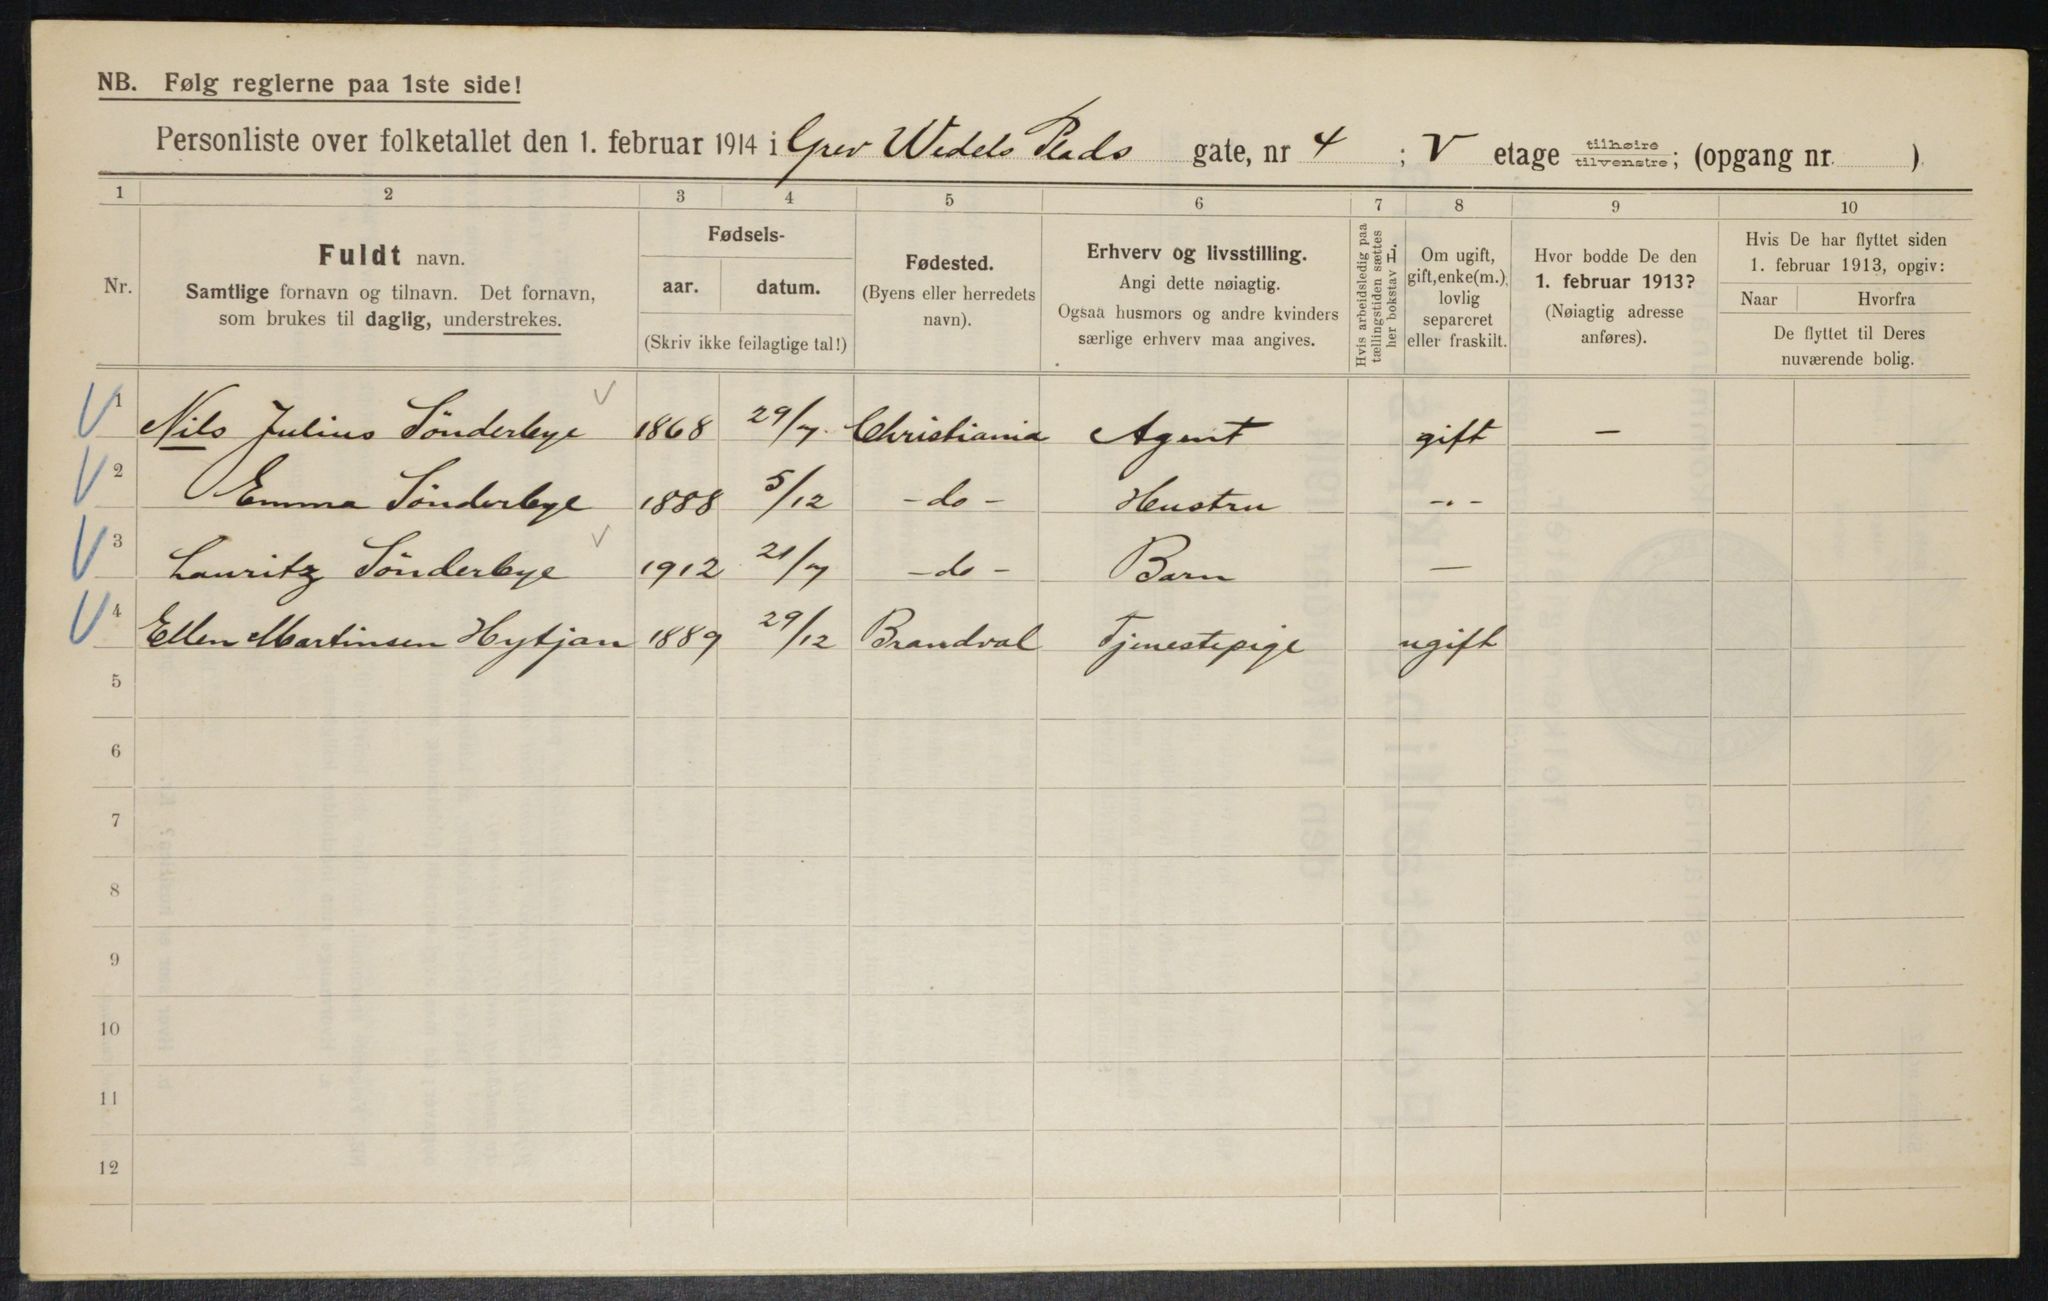 NB. Følg reglerne paa 1ste side!
Personliste over folketallet den 1. februar 1914 i Grev Wedels Plads gate, nr 4 ; V etage tilhøire tilvenstre; (opgang nr )
1 2 3 4 5 6 7 8 9 10
Nr.
Fuldt navn.
Samtlige fornavn og tilnavn. Det fornavn,
som brukes til daglig, understrekes.
Fødsels-
aar. datum.
(Skriv ikke feilagtige tal!)
Fødested.
(Byens eller herredets
navn).
Erhverv og livsstilling.
Angi dette nøiagtig.
Ogsaa husmors og andre kvinders
særlige erhverv maa angives.
Hvis arbeidsledig paa
tællingstiden sættes
her bokstav L.
Om ugift,
gift, enke(m.),
lovlig
separeret
eller fraskilt.
Hvor bodde De den
1. februar 1913?
(Nøiagtig adresse
anføres).
Hvis De har flyttet siden
1. februar 1913, opgiv:
Naar Hvorfra
De flyttet til Deres
nuværende bolig.
1 Nils Julius Sönderbye 1868 29/7 Christiania Agent gift –
2 Emma Sönderbye 1888 5/12 -do- Hustru -"-
3 Lauritz Sönderbye 1912 21/7 -do- Barn —
4 Ellen Martinsen Hytjan 1889 29/12 Brandval Tjenestepige ugift
5
6
7
8
9
10
11
12